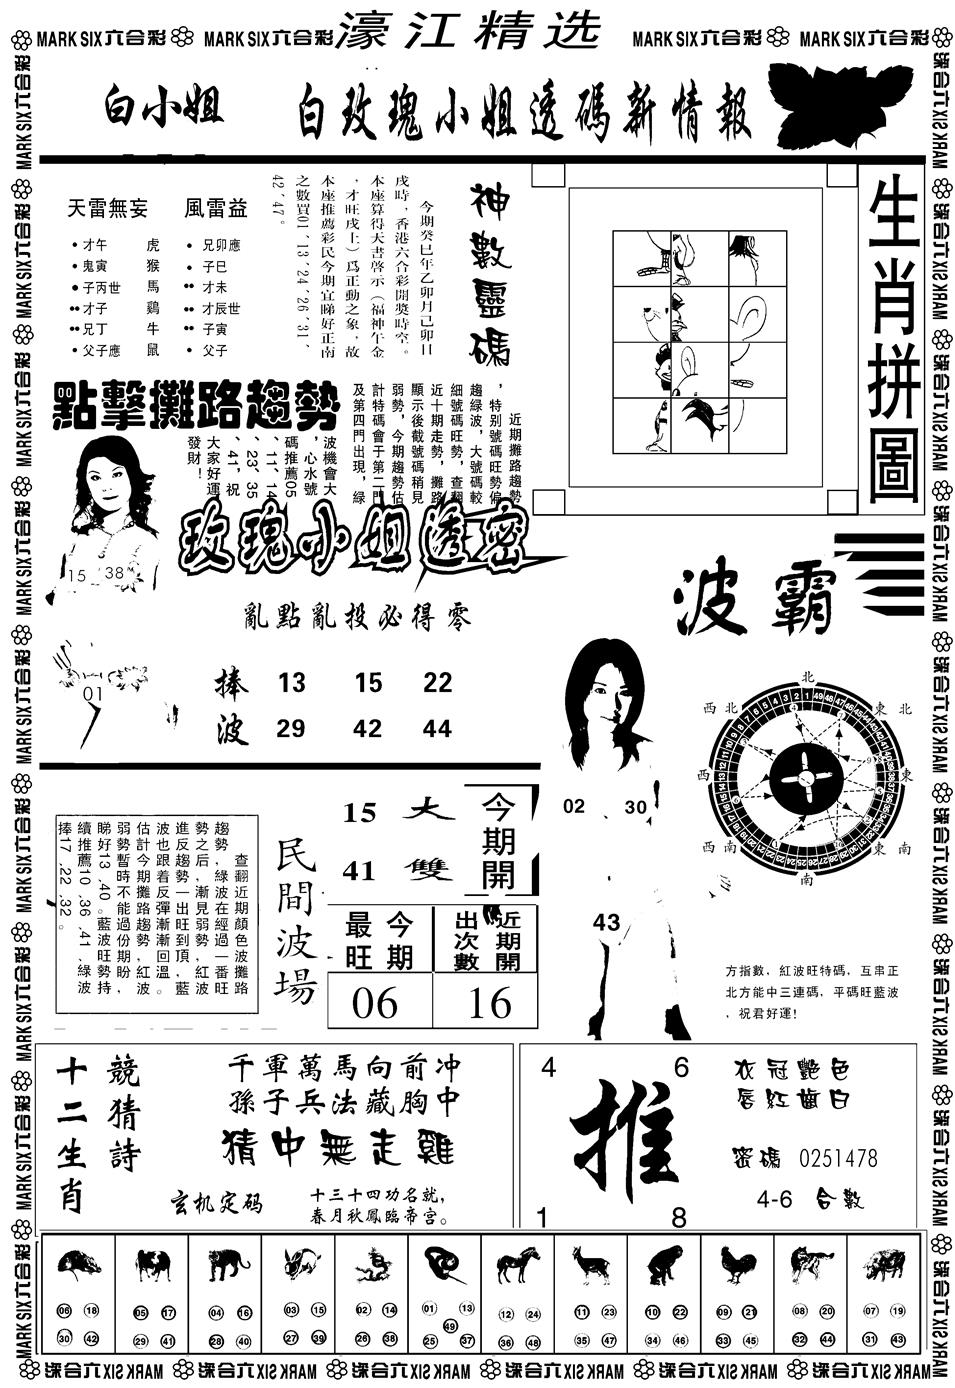 MARK SIX六合彩
MARK SIX六合彩
濠江精选
MARK SIX六合彩
MARK SIX六合彩
白小姐
白玫瑰小姐透碼新情報
天雷無妄
風雷益
・才午 虎
・鬼寅 猴
●子丙世 馬
●●才子 鷄
●●兄丁 牛
・父子應 鼠
・兄卯應
・子巳
●●才未
●●才辰世
●●子寅
・父子
神數靈碼
今期癸巳年乙卯月己卯日
戌時，香港六合彩開獎時空。
本座算得天書啓示（福神午金
，才旺戌上）爲正動之象，故
本座推薦彩民今期宜睇好正南
之數買01ˊ13ˊ24ˊ26ˊ31ˊ
42ˊ47。
生肖拼圖
點擊攤路趨勢
近期攤路趨勢
，特別號碼旺勢偏
趨綠波，大號碼較
細號碼旺勢，查翻
近十期走勢，攤路
顯示後截號碼稍見
弱勢，今期趨勢估
計特碼會于第二門
及第四門出現，綠
波機會大
，心水號
碼推薦05
、11、14
、23、35
、41，祝
大家好運
發財！
15 38
01
玫瑰小姐透密
亂點亂投必得零
捧 13 15 22
波 29 42 44
波霸
北
西北
東北
西
東
西南
東南
南
02 30
43
方指數，紅波旺特碼，互串正
北方能中三連碼，平碼旺藍波
，祝君好運!
查翻近期顔色波攤路
趨勢，綠波在經過一番旺
勢之后，漸見弱勢，紅波
進反趨勢一出旺到頂，藍
波也跟着反彈漸漸回溫。
估計今期攤路趨勢紅波
弱勢暫時不能過份期盼，
睇好13、40。藍波旺勢持
續推薦10、36、41、綠波
捧17、22、32。
民間波場
15 大
41 雙
今期開
今期最旺
近期開出次數
06
16
十二生肖
競猜詩
千軍萬馬向前冲
孫子兵法藏胸中
猜中無走雞
玄机定码
十三十四功名就，
春月秋鳳臨帝宫。
4 6
推
1 8
衣冠艷色
唇紅齒白
密碼 0251478
4-6 合數
06 18 30 42
05 17 29 41
04 16 28 40
03 15 27 39
02 14 26 38
01 13 49 25 37
12 24 36 48
11 23 35 47
10 22 34 46
09 21 33 45
08 20 32 44
07 19 31 43